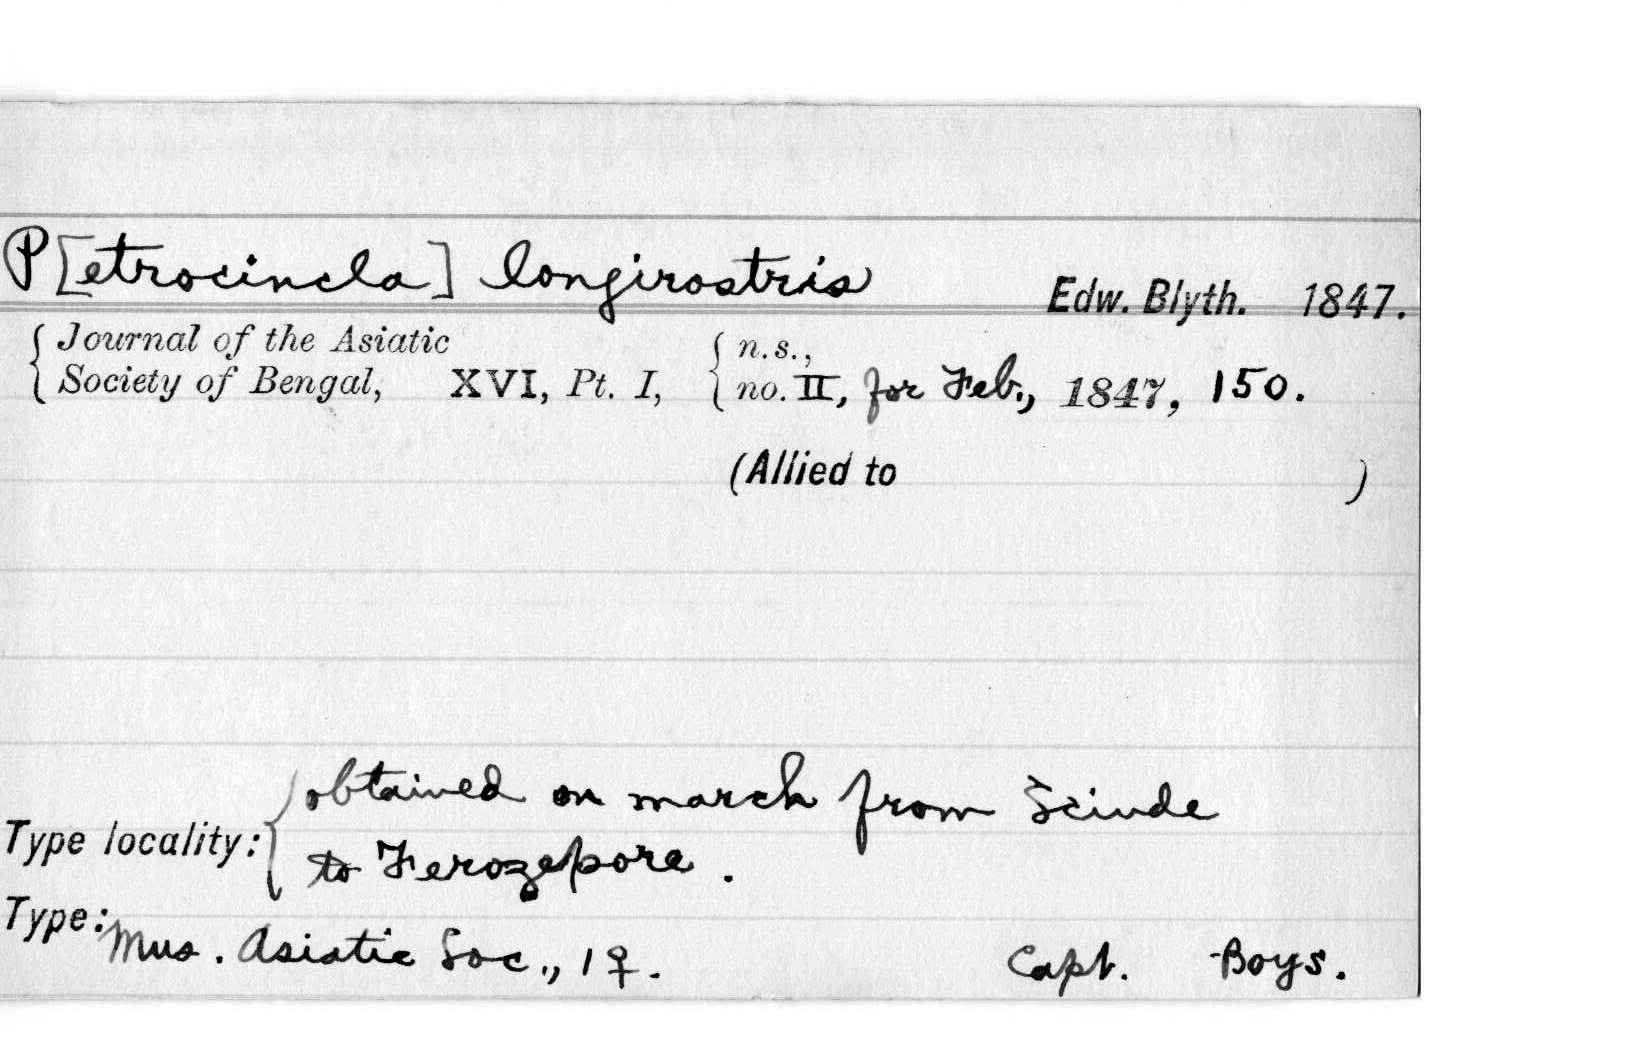 P[etrocincla] longirostris Edw. Blyth. 1847.
Journal of the Asiatic
Society of Bengal, XVI, Pt. I, n.s.,
no. II, for Feb., 1847, 150.
(Allied to )
Type locality: obtained on march from Scinde
to Ferozepore.
Type: Mus. Asiatic Soc., 1♀. Capt. Boys.